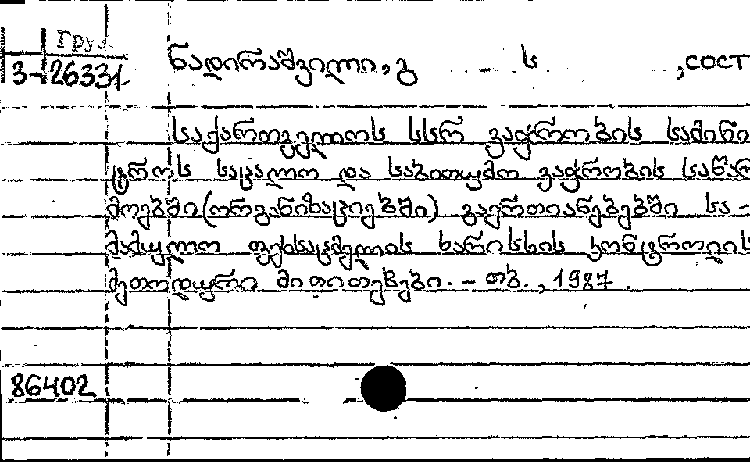 Груз.
3-26331 ნადირაშვილი, გ ს , сост
საქართველოს სსრ ვაჭრობის სამინი
სტროს საცალო და საბითუმო ვაჭრობის საწარ
მოებში (ორგანიზაციებში) გაერთიანებებში სა-
მამულო ფეხსაცმელის ხარისხის კონტროლის
მეთოდური მითითებები. - თბ., 1987.
86402